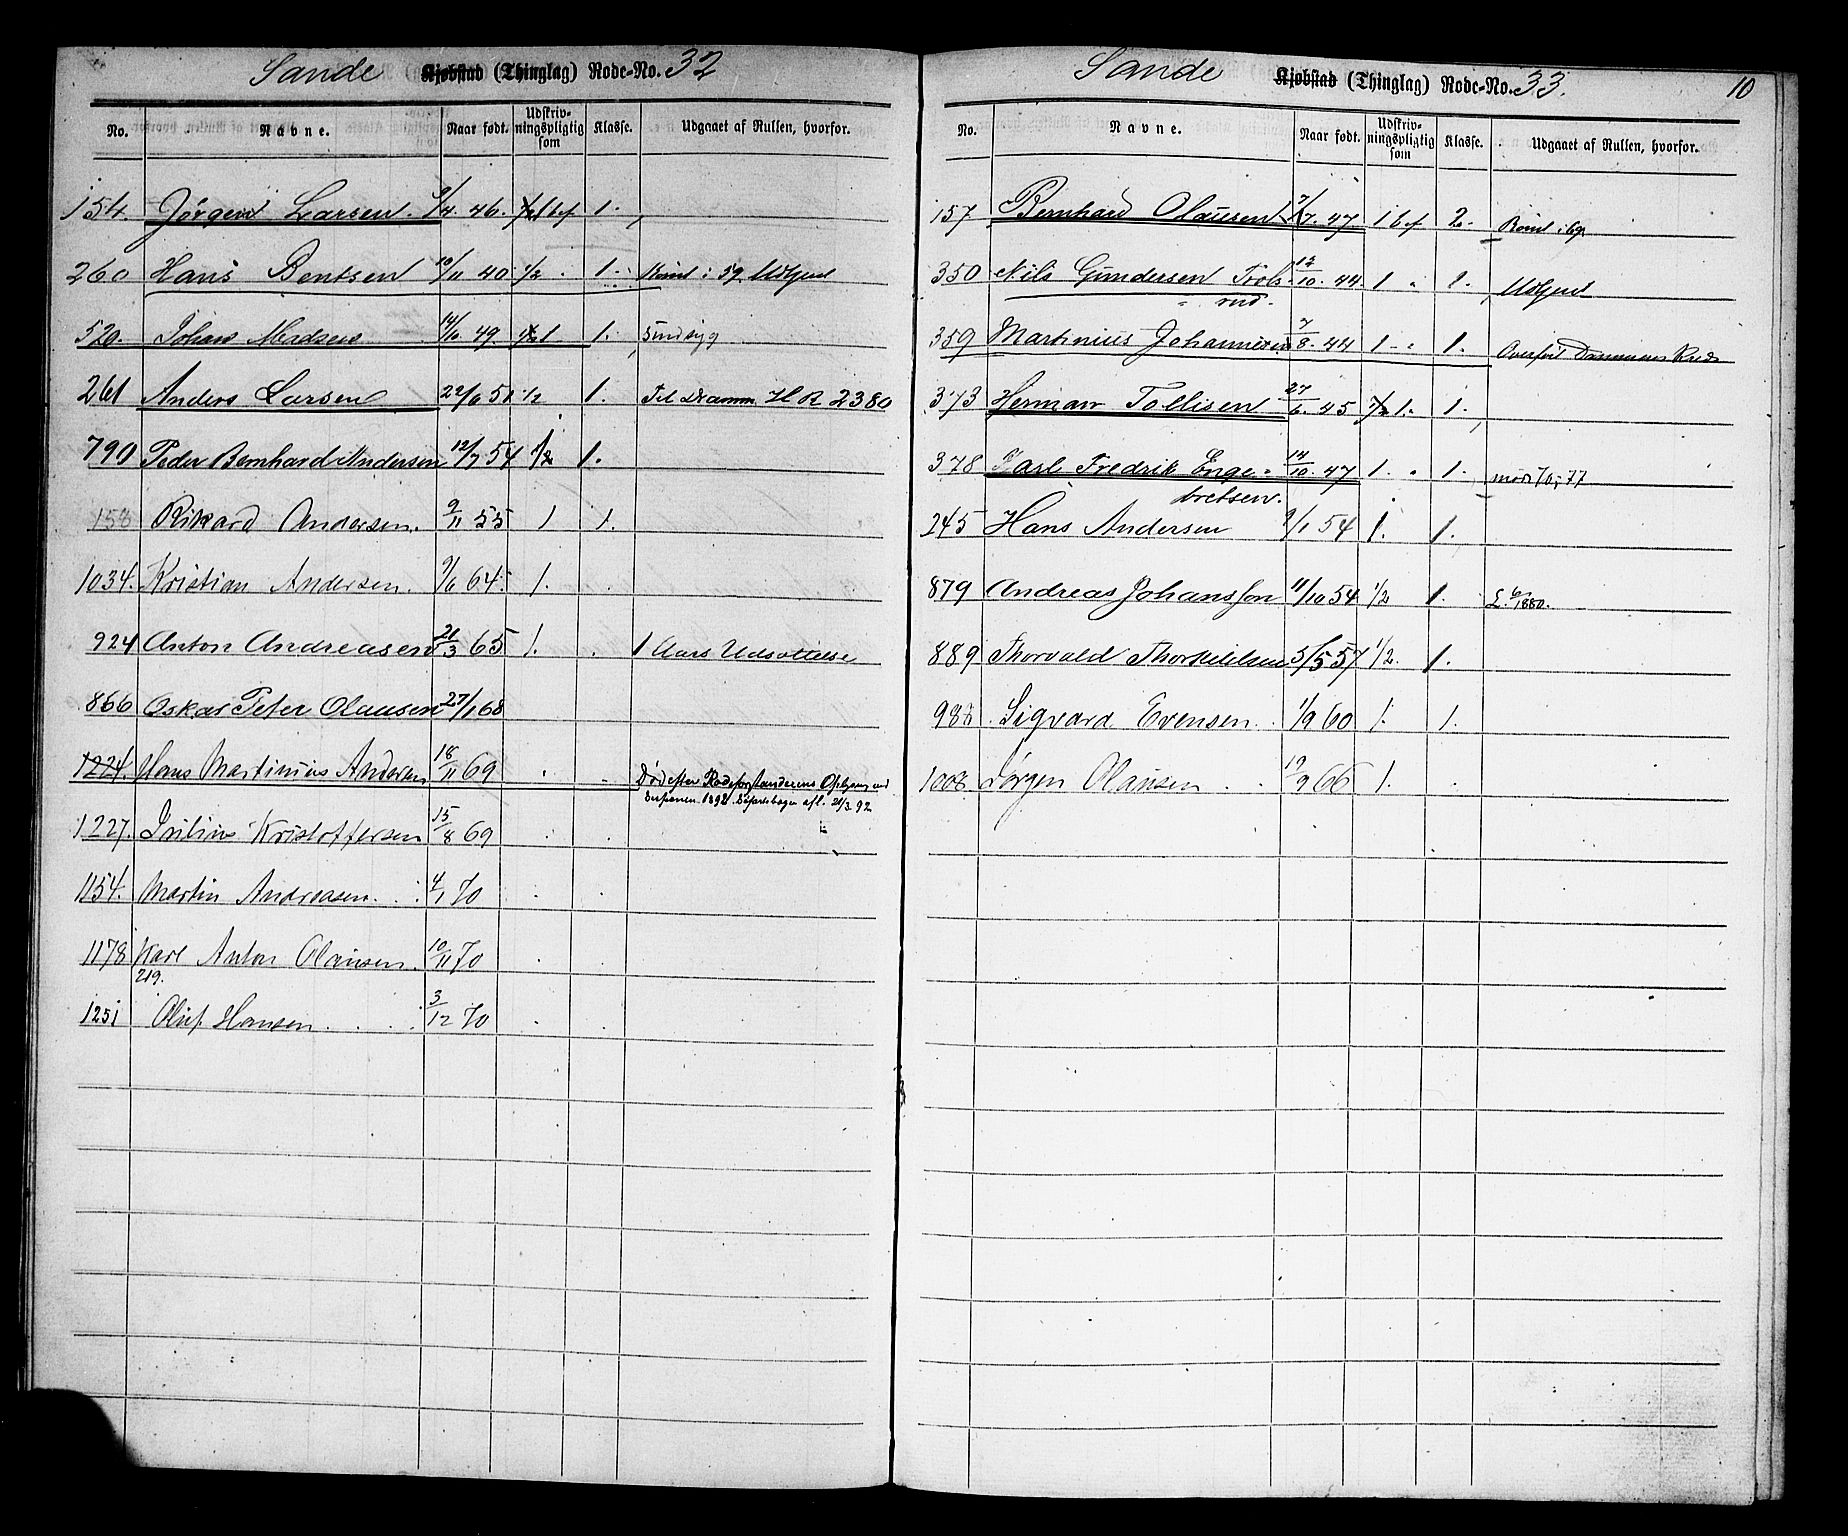 Sande Kjøbstad (Thinglag) Rode-No. 32
No. Navne. Naar født. Udskriv-ningspligtig som Klasse. Udgaaet af Rullen, hvorfor.
154. Jørgen Larsen. 9/4. 46. 1 bef 1.
260 Hans Bentsen 10/11 40. 1/2 1.
520. Johan Madsen 14/10 49. 1 1. Sindsyg
261 Anders Larsen 22/6 51 1/2 1. Til Dramm. H R 2380
790 Peder Bernhard Andersen 12/7 54 1/2 1.
158 Rikard Andersen. 9/11 55 1 1.
1034. Kristian Andersen. 9/6 64. 1.
924 Anton Andreasen 21/3 65 1. 1 Aars Udsættelse
866 Oskar Peter Olausen 27/1 68
1224. Hans Martinius Andersen 18/11 69 Død efter Rodeforstanderens
Sessionen 1892. 21/3 92
1227. Julius Kristoffersen 15/8 69
1154. Martin Andreasen. 4/1 70
1178 Karl Anton Olausen. 10/11 70
219.
1251 Oluf Hansen 3/12 70
10
Sande Kjøbstad (Thinglag) Rode-No. 33.
No. Navne. Naar født. Udskriv-ningspligtig som Klasse. Udgaaet af Rullen, hvorfor.
157 Bernhard Olausen 7/7. 47. 1 bef 2.
350 Nils Gundersen Trols- 12/10. 44. 1 " 1.
rud.
359 Martinius Johannesen 7/8. 44 1 " 1. Overført Drammens Kreds
373 Herman Tollisen 27/6. 45 1. 1.
378 Karl Fredrik Enge- 14/10. 47 1. " 1.
bretsen.
245 Hans Andersen 9/1 54 1. 1.
879 Andreas Johansson 11/10 54 1/2 1. 1880.
889 Thorvald Thorkildsen 5/5 57 1/2. 1.
988 Sigvard Evensen. 1/9 60 1. 1.
1008. Jørgen Olausen 19/9 66 1.